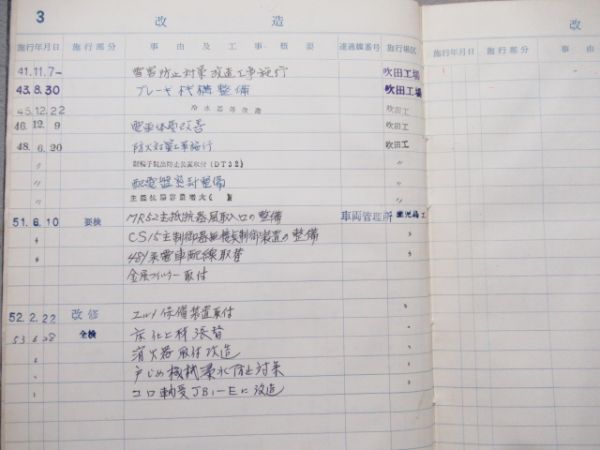 3 改造
施行年月日 施行部分 事由及工事概要 達通牒番号 施行場区
41.11.7 雪害防止対策改造工事施行 吹田工場
43.8.30 ブレーキ機構整備 吹田工場
45.12.22 冷水器等改造 吹田工
46.12.9 電車体質改善 吹田工
48.6.20 防火対策工事施行 吹田工
〃 取付(DT32) 〃
〃 配電盤 整備 〃
〃 主抵抗器容量増大
51.6.10 要検 MR52主抵抗器風取入口の整備 車両管理所 鹿児島工
〃 CS15主制御器 制御装置の整備 〃
〃 489系電車配線取替 〃
金属フィルター取付
52.2.22 改修 保備装置取付 〃
53.6.28 全検 床仕上材張替 〃
〃 消火器取付改造 〃
〃 戸じめ機械漏水防止対策 〃
〃 コロ軸受JB1-Eに改造 〃
施行年月日 施行部分 事由